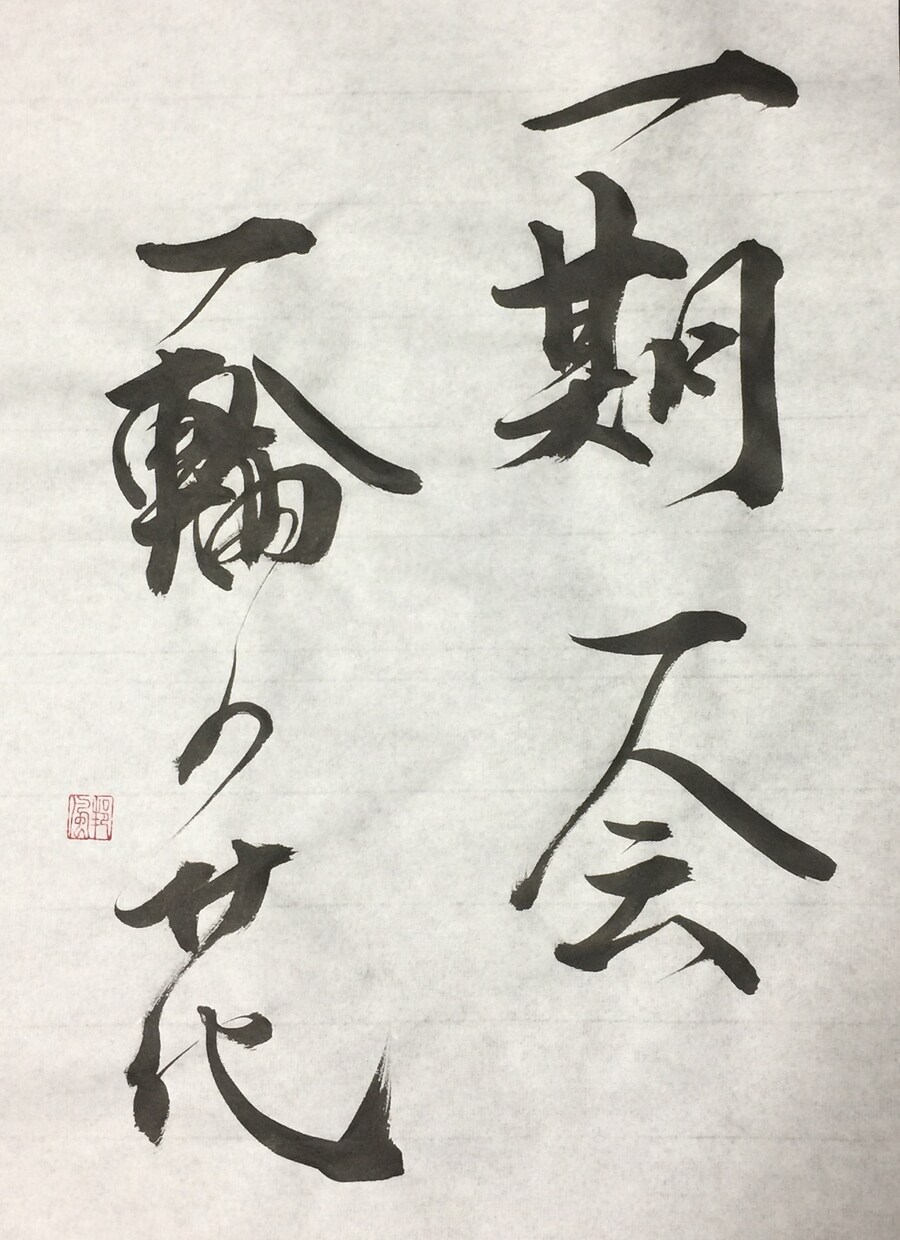 一期一会
一輪の花